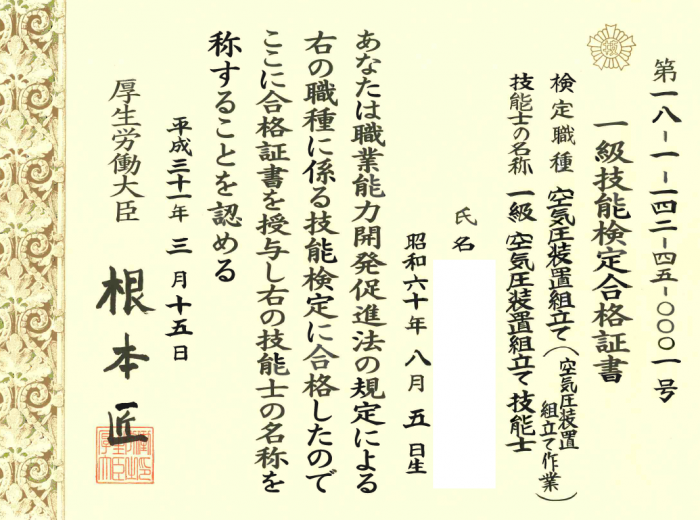 第一八-一-一四二-四五-〇〇〇一号
一級技能検定合格証書
検定職種 空気圧装置組立て(空気圧装置組立て作業)
技能士の名称 一級 空気圧装置組立て 技能士
氏名
昭和六十年 八月 五日生
あなたは職業能力開発促進法の規定による
右の職種に係る技能検定に合格したので
ここに合格証書を授与し右の技能士の名称を
称することを認める
平成三十一年 三月十五日
厚生労働大臣 根本匠